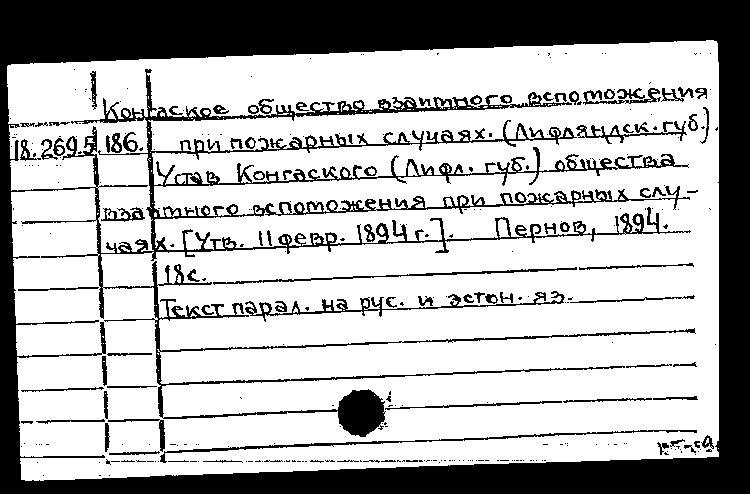 Конгаское общество взаимного вспоможения
18.269.5.186. при пожарных случаях. (Лифляндск. губ.).
Устав Конгаского (Лифл. губ.) общества
взаимного вспоможения при пожарных слу-
чаях. [Утв. 11 февр. 1894 г.]. Пернов, 1894.
18с.
Текст парал. на рус. и эстон. яз.